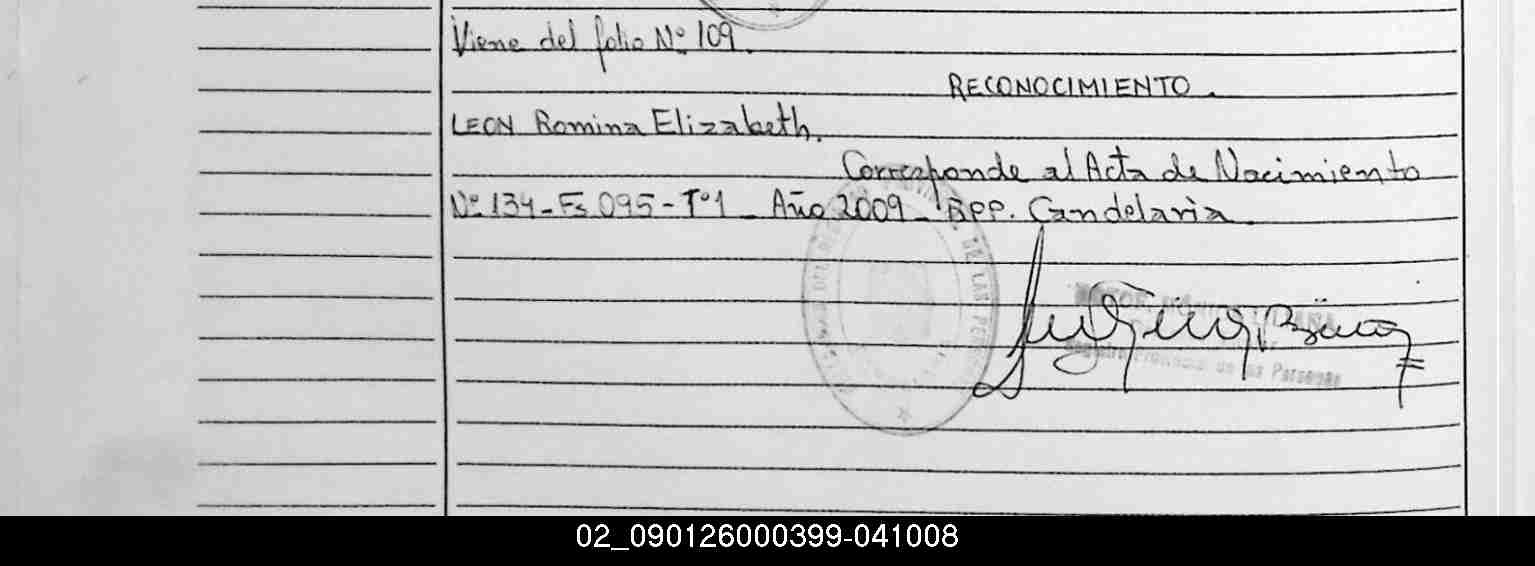 Viene del folio Nº 109.
RECONOCIMIENTO.
LEON Romina Elizabeth.
Corresponde al Acta de Nacimiento
Nº 134-Fs 095-Tº1- Año 2009- RPP. Candelaria
DE LAS
de las Personas
02_090126000399-041008